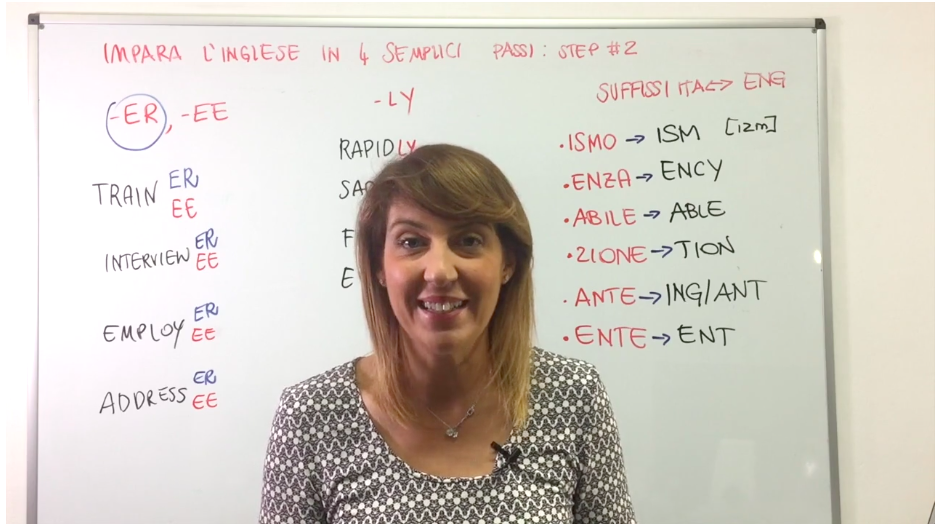 IMPARA L'INGLESE IN 4 SEMPLICI PASSI: STEP #2
-ER, -EE
TRAIN ER
EE
INTERVIEW ER
EE
EMPLOY ER
EE
ADDRESS ER
EE
-LY
RAPIDLY
SUFFISSI ITA<-> ENG
·ISMO → ISM [izm]
·ENZA → ENCY
·ABILE → ABLE
·ZIONE → TION
·ANTE → ING/ANT
·ENTE → ENT